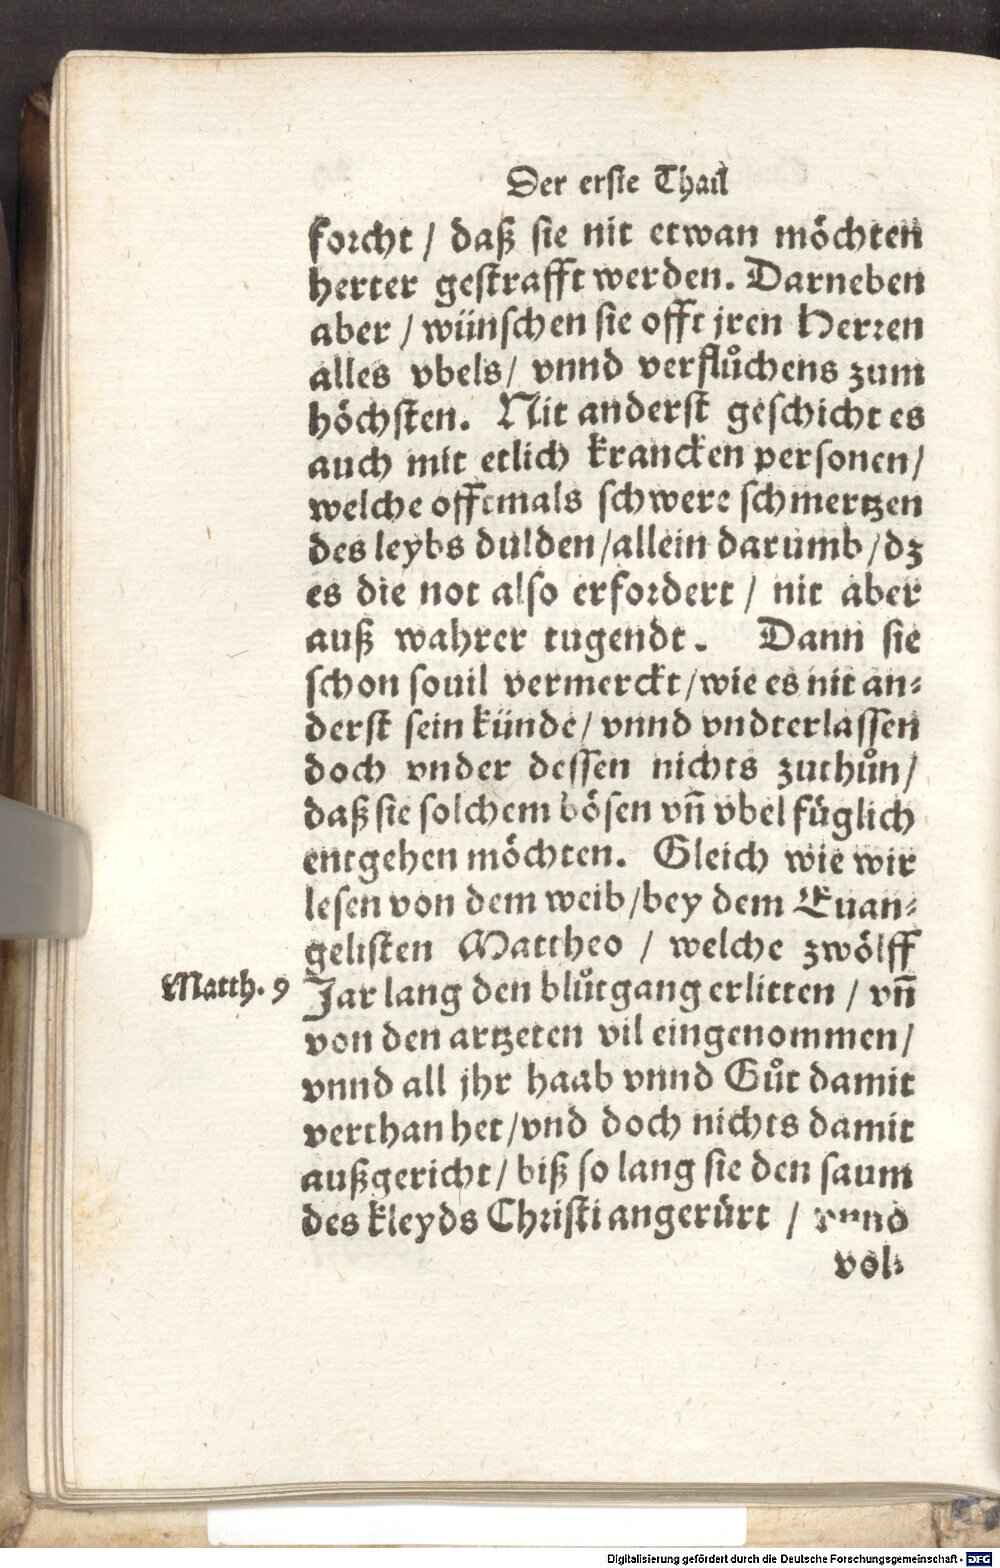 Der erste Thail
forcht / daß sie nit etwan möchten
herter gestrafft werden. Darneben
aber / wünschen sie offt jren Herren
alles vbels / vnnd verflůchens zum
höchsten. Nit anderst geschicht es
auch mit etlich krancken personen /
welche offtmals schwere schmertzen
des leybs dulden / allein darumb / dz
es die not also erfordert / nit aber
auß wahrer tugendt. Dann sie
schon souil vermerckt / wie es nit an⸗
derst sein künde / vnnd vndterlassen
doch vnder dessen nichts zuthůn /
daß sie solchem bösen vñ vbel füglich
entgehen möchten. Gleich wie wir
lesen von dem weib / bey dem Euan⸗
gelisten Mattheo / welche zwölff
Matth. 9 Jar lang den blůtgang erlitten / vñ
von den artzeten vil eingenommen /
vnnd all jhr haab vnnd Gůt damit
verthan het / vnd doch nichts damit
außgericht / biß so lang sie den saum
des kleyds Christi angerürt / vnnd
vol⸗
Digitalisierung gefördert durch die Deutsche Forschungsgemeinschaft - DFG